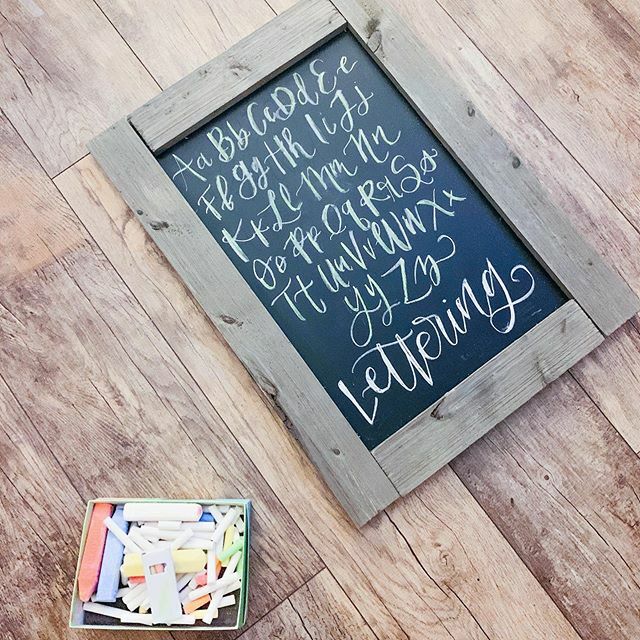 Aa Bb Cc Dd Ee
Ff Gg Hh Ii Jj
Kk Ll Mm Nn
Oo Pp Qq Rr Ss
Tt Uu Vv Ww Xx
Yy Zz
Lettering